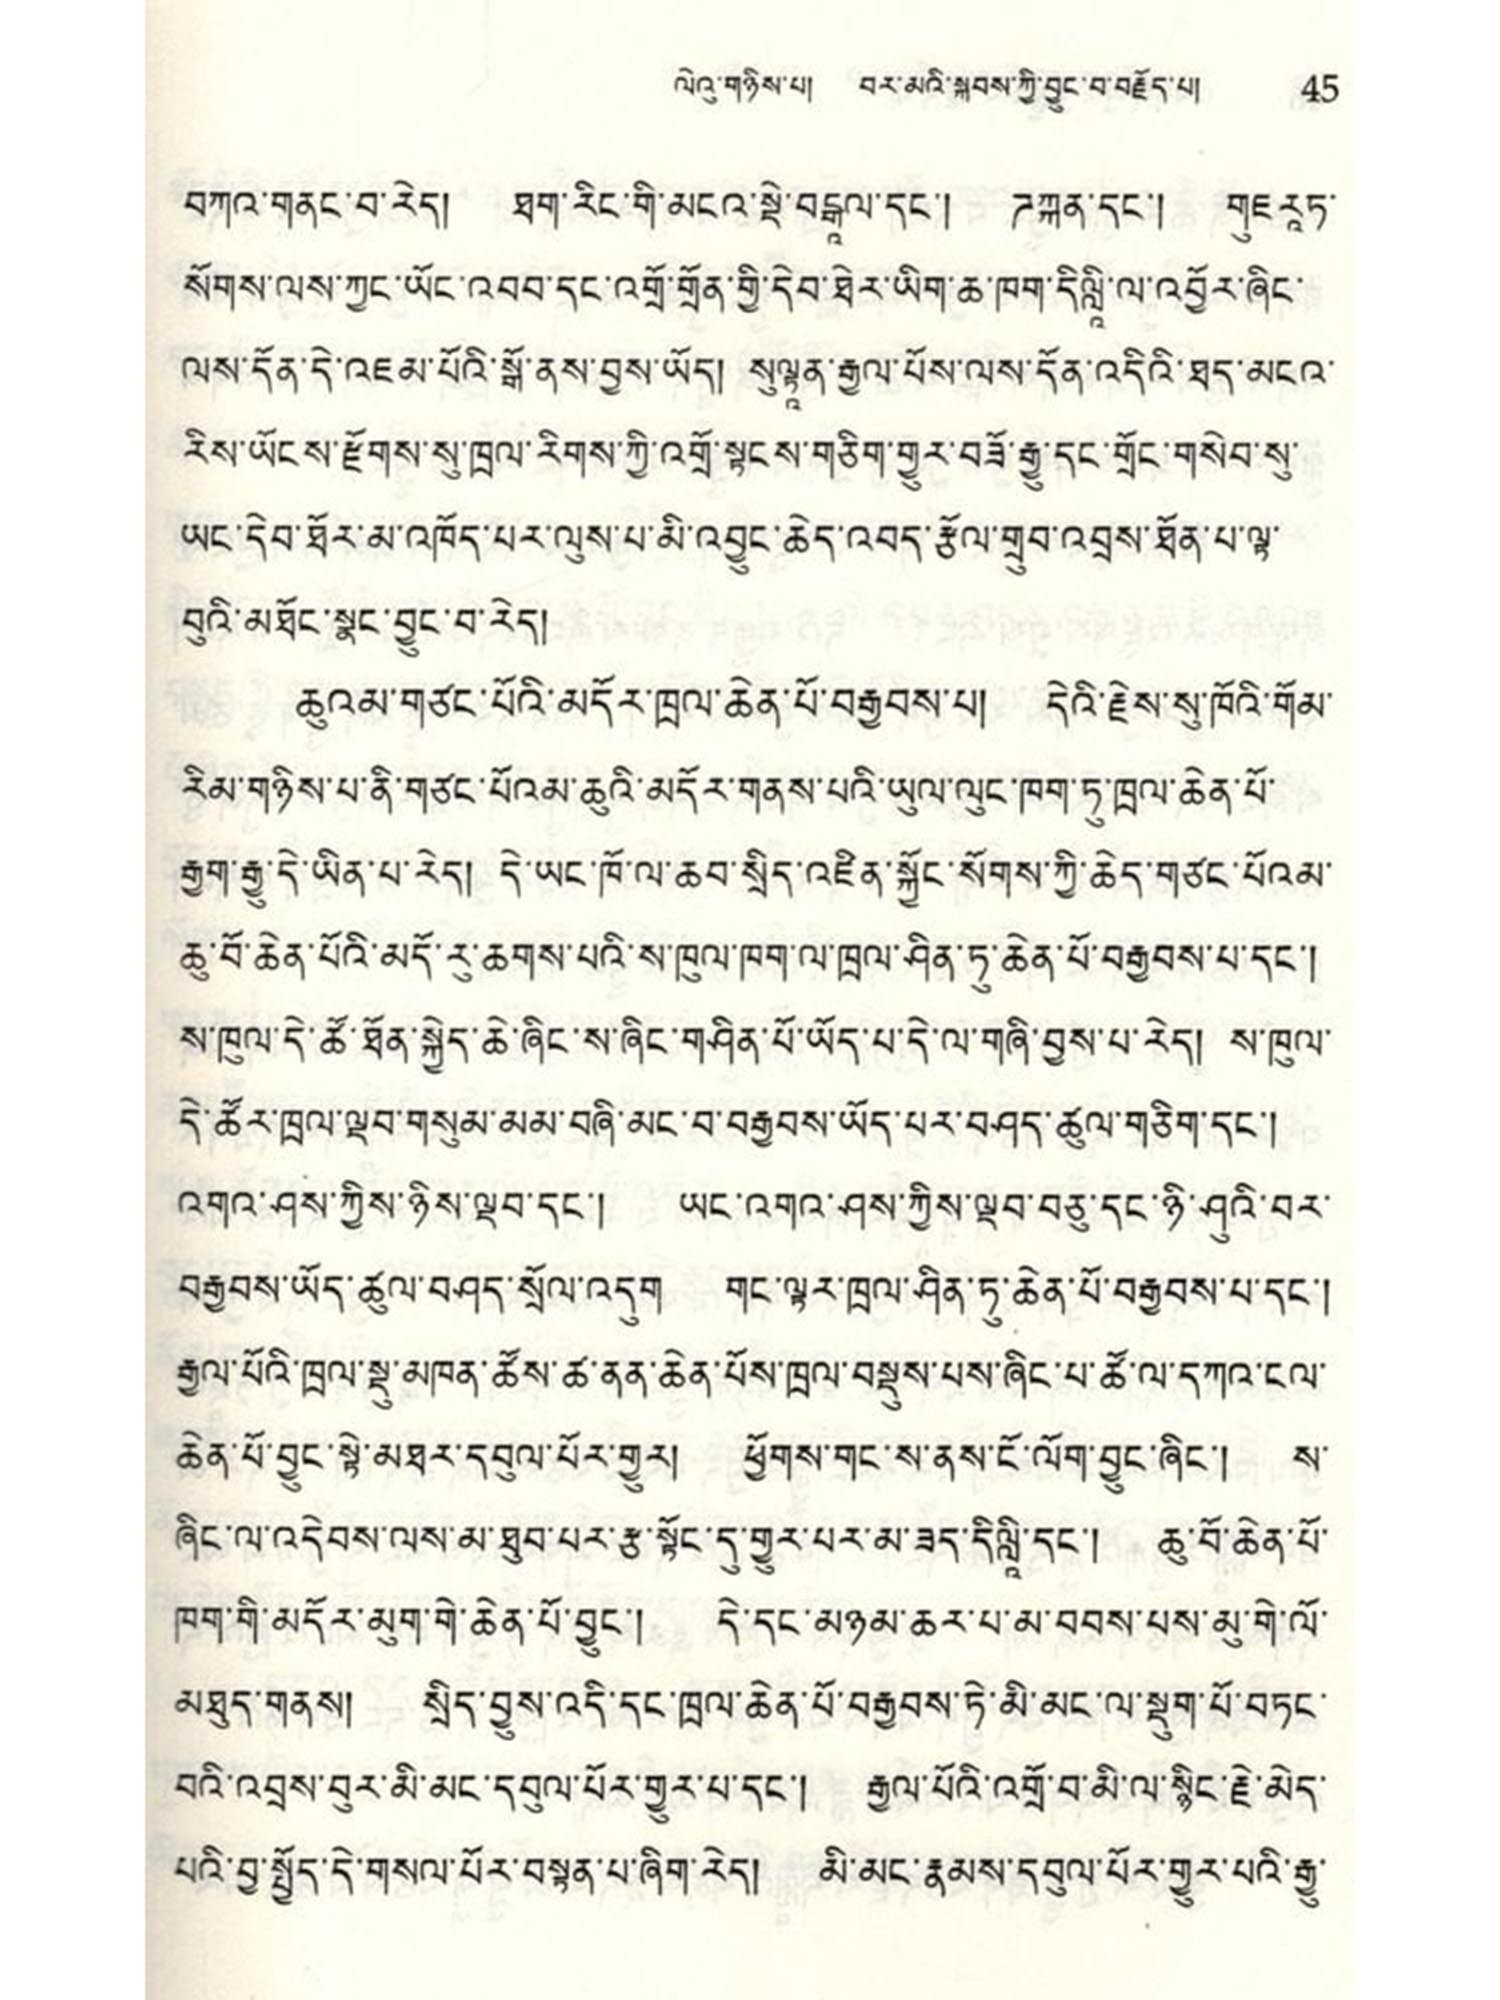 ལེའུ་གཉིས་པ། བར་མའི་སྐབས་ཀྱི་བྱུང་བ་བརྗོད་པ། 45
བཀའ་གནང་བ་རེད། ཐག་རིང་གི་མངའ་སྡེ་བངྒཱལ་དང་། ཌཀྐན་དང་། གུཇརཱཏ་
སོགས་ལས་ཀྱང་ཡོང་འབབ་དང་འགྲོ་གྲོན་གྱི་དེབ་ཐེར་ཡིག་ཆ་ཁག་དིལླཱི་ལ་འབྱོར་ཞིང་
ལས་དོན་དེ་འཇམ་པོའི་སྒོ་ནས་བྱས་ཡོད། སུལྟཱན་རྒྱལ་པོས་ལས་དོན་འདིའི་ཐད་མངའ་
རིས་ཡོངས་རྫོགས་སུ་ཁྲལ་རིགས་ཀྱི་འགྲོ་སྟངས་གཅིག་གྱུར་བཟོ་རྒྱུ་དང་གྲོང་གསེབ་སུ་
ཡང་དེབ་ཐོར་མ་འཁོད་པར་ལུས་པ་མི་འབྱུང་ཆེད་འབད་རྩོལ་གྲུབ་འབྲས་ཐོན་པ་ལྟ་
བུའི་མཐོང་སྣང་བྱུང་བ་རེད།
ཆུའམ་གཙང་པོའི་མདོར་ཁྲལ་ཆེན་པོ་བརྒྱབས་པ། དེའི་རྗེས་སུ་ཁོའི་གོམ་
རིམ་གཉིས་པ་ནི་གཙང་པོའམ་ཆུའི་མདོར་གནས་པའི་ཡུལ་ལུང་ཁག་ཏུ་ཁྲལ་ཆེན་པོ་
རྒྱག་རྒྱུ་དེ་ཡིན་པ་རེད། དེ་ཡང་ཁོ་ལ་ཆབ་སྲིད་འཛིན་སྐྱོང་སོགས་ཀྱི་ཆེད་གཙང་པོའམ་
ཆུ་བོ་ཆེན་པོའི་མདོ་རུ་ཆགས་པའི་ས་ཁུལ་ཁག་ལ་ཁྲལ་ཤིན་ཏུ་ཆེན་པོ་བརྒྱབས་པ་དང་།
ས་ཁུལ་དེ་ཚོ་ཐོན་སྐྱེད་ཆེ་ཞིང་ས་ཞིང་གཤིན་པོ་ཡོད་པ་དེ་ལ་གཞི་བྱས་པ་རེད། ས་ཁུལ་
དེ་ཚོར་ཁྲལ་ལྡབ་གསུམ་མམ་བཞི་མང་བ་བརྒྱབས་ཡོད་པར་བཤད་ཚུལ་གཅིག་དང་།
འགའ་ཤས་ཀྱིས་ཉིས་ལྡབ་དང་། ཡང་འགའ་ཤས་ཀྱིས་ལྡབ་བཅུ་དང་ཉི་ཤུའི་བར་
བརྒྱབས་ཡོད་ཚུལ་བཤད་སྲོལ་འདུག གང་ལྟར་ཁྲལ་ཤིན་ཏུ་ཆེན་པོ་བརྒྱབས་པ་དང་།
རྒྱལ་པོའི་ཁྲལ་སྡུ་མཁན་ཚོས་ཚ་ནན་ཆེན་པོས་ཁྲལ་བསྡུས་པས་ཞིང་པ་ཚོ་ལ་དཀའ་ངལ་
ཆེན་པོ་བྱུང་སྟེ་མཐར་དབུལ་པོར་གྱུར། ཕྱོགས་གང་ས་ནས་ངོ་ལོག་བྱུང་ཞིང་། ས་
ཞིང་ལ་འདེབས་ལས་མ་ཐུབ་པར་རྩ་སྟོང་དུ་གྱུར་པར་མ་ཟད་དིལླཱི་དང་། ཆུ་བོ་ཆེན་པོ་
ཁག་གི་མདོར་མུག་གེ་ཆེན་པོ་བྱུང་། དེ་དང་མཉམ་ཆར་པ་མ་བབས་པས་མུ་གེ་ལོ་
མཐུད་གནས། སྲིད་བྱུས་འདི་དང་ཁྲལ་ཆེན་པོ་བརྒྱབས་ཏེ་མི་མང་ལ་སྡུག་པོ་བཏང་
བའི་འབྲས་བུར་མི་མང་དབུལ་པོར་གྱུར་པ་དང་། རྒྱལ་པོའི་འགྲོ་བ་མི་ལ་སྙིང་རྗེ་མེད་
པའི་བྱ་སྤྱོད་དེ་གསལ་པོར་བསྟན་པ་ཞིག་རེད། མི་མང་རྣམས་དབུལ་པོར་གྱུར་པའི་རྒྱུ་